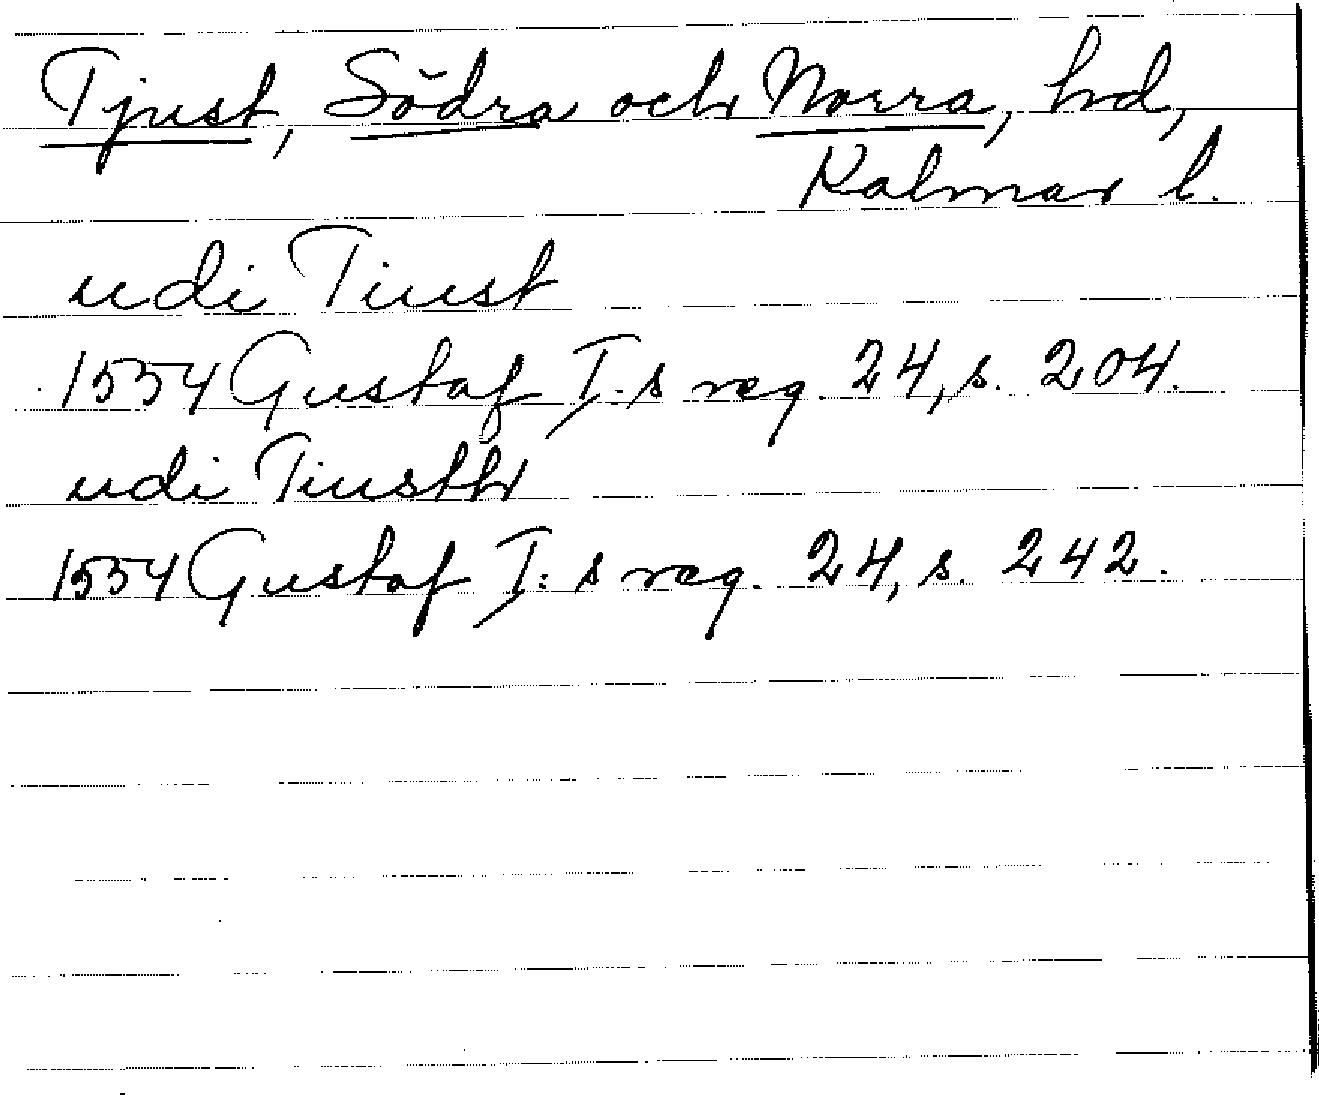 Tjust, Södra och Norra, hd,
Kalmar l.
udi Tiust
1554 Gustaf I:s reg. 24, s. 204.
udi Tiusth
1554 Gustaf I:s reg. 24, s. 242.